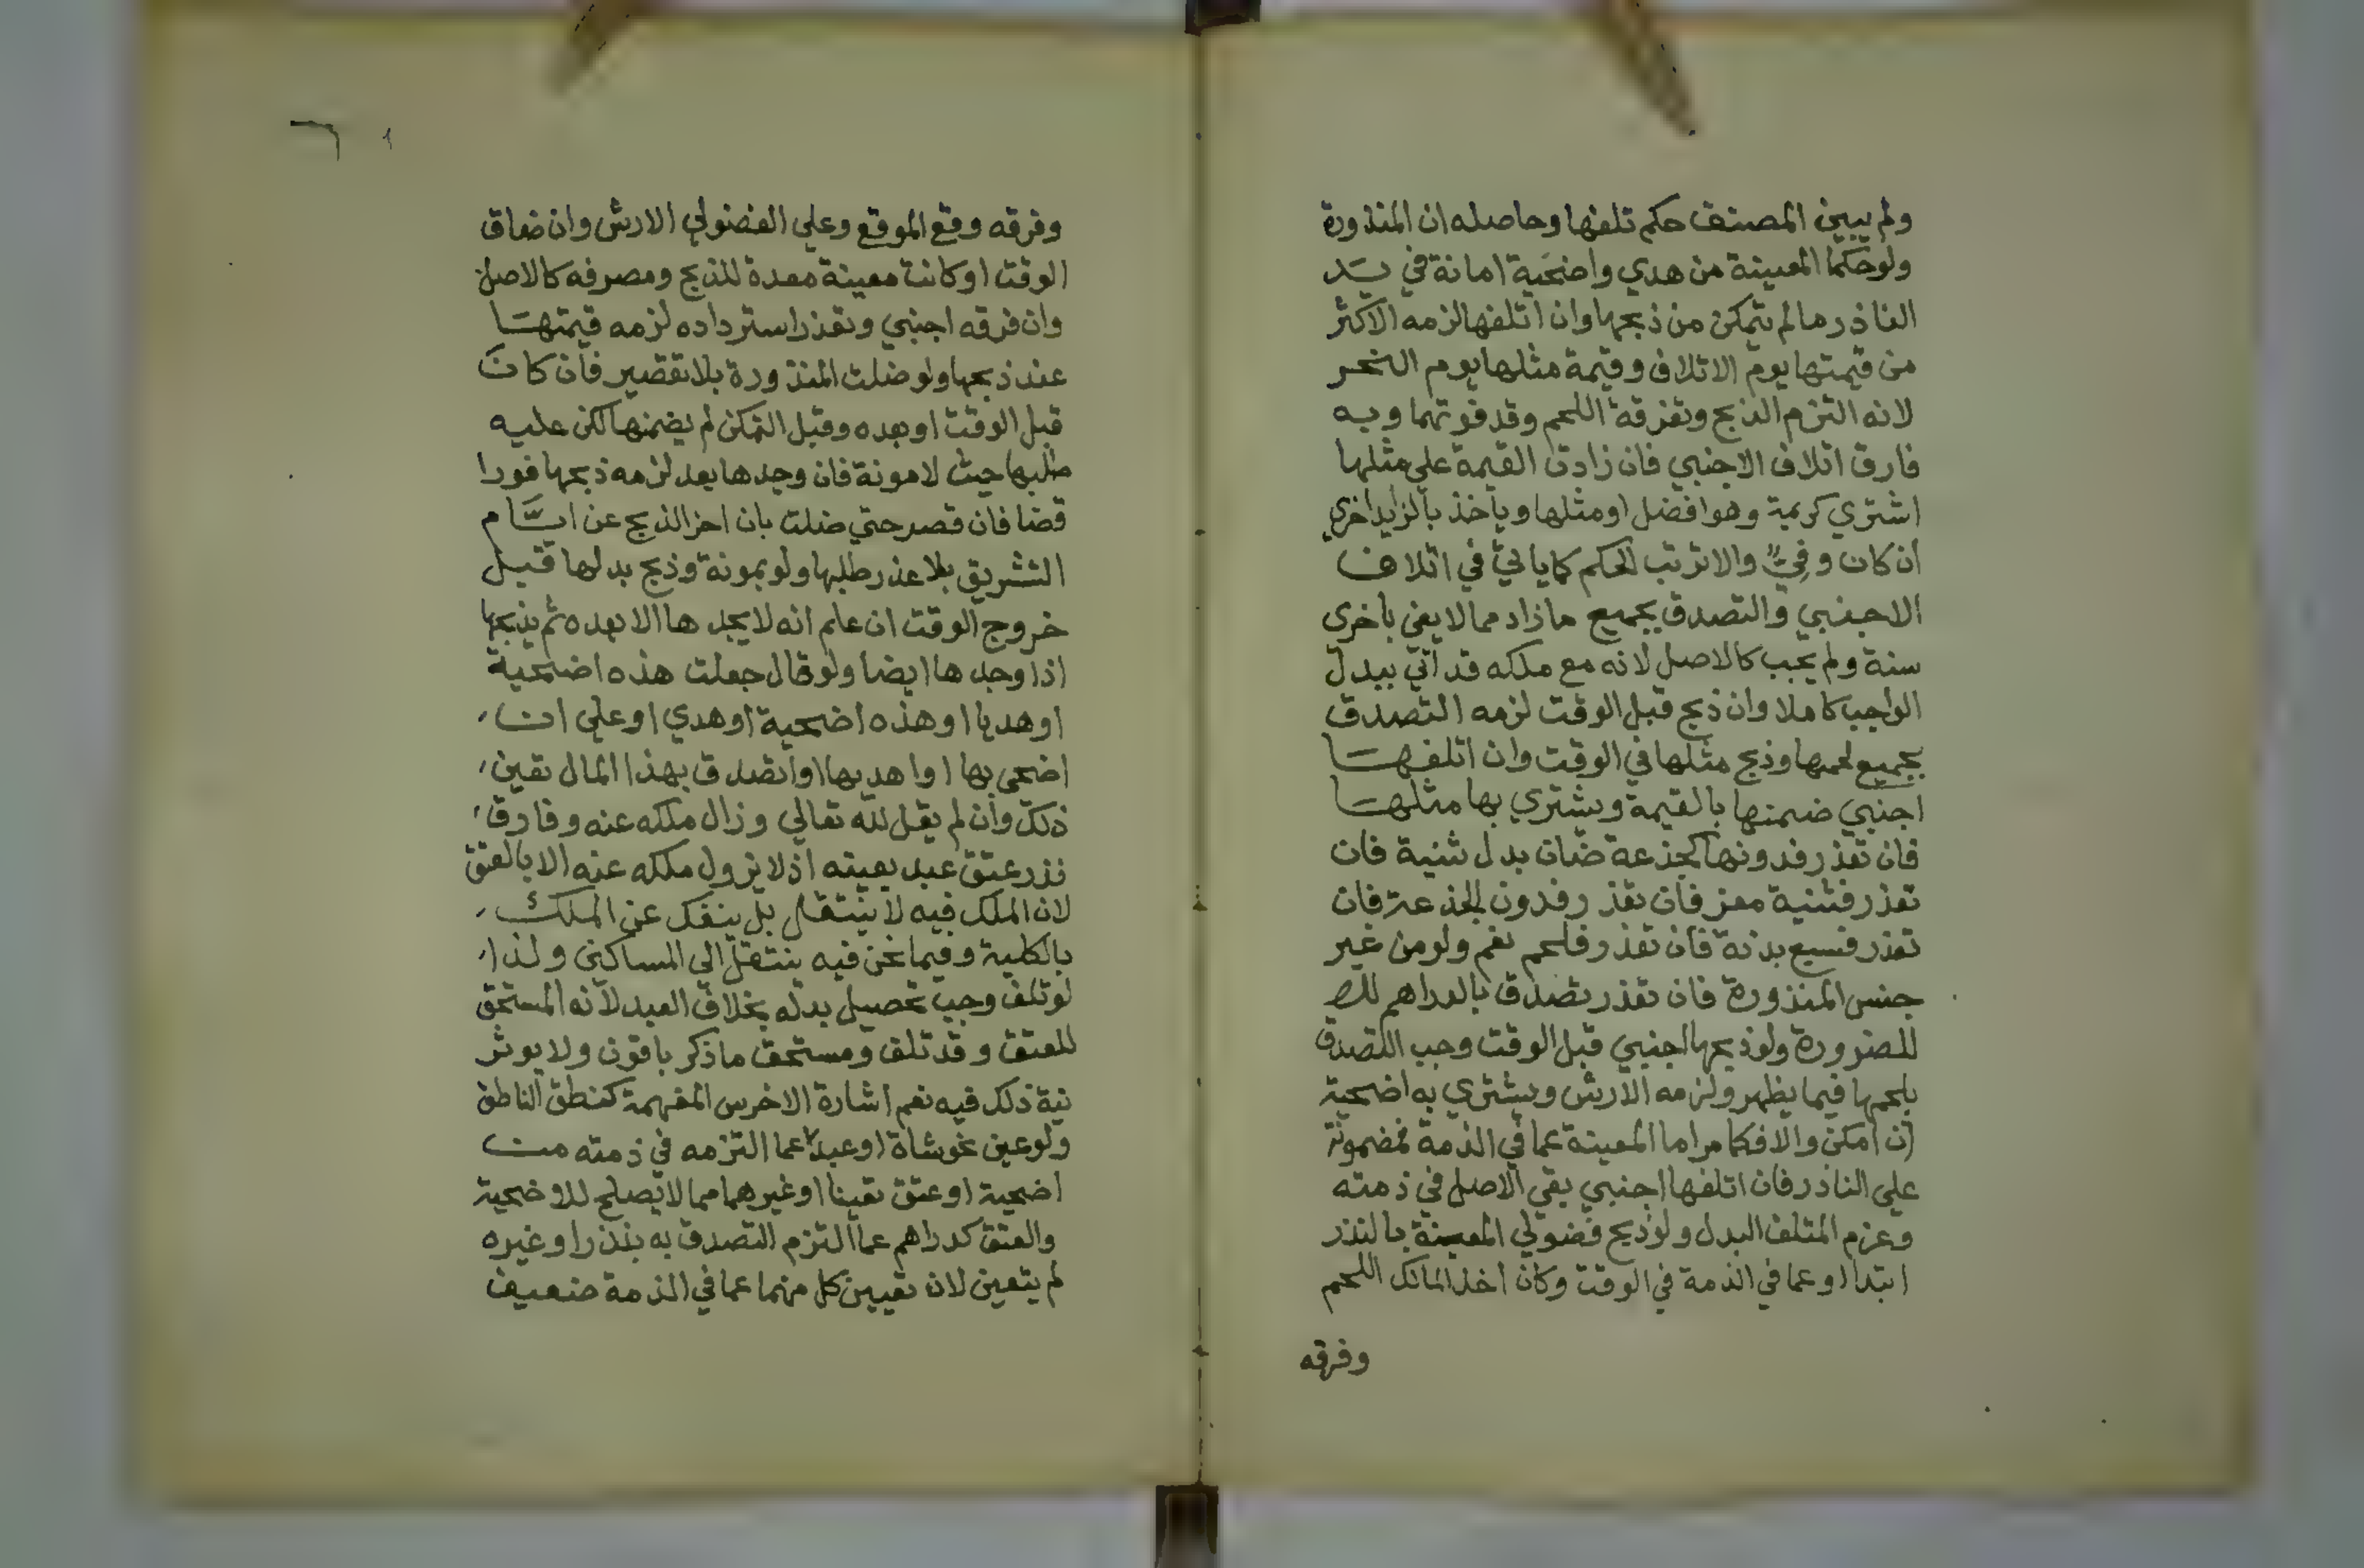 ولم يبين المصنف حكم تلفها وحاصله ان المنذورة
ولو حكما المعينة من هدي واضحية امانة في يد
الناذر ما لم يتمكن من ذبحها وان اتلفها لزمه الاكثر
من قيمتها يوم الاتلاف وقيمة مثلها يوم النحر
لانه التزم الذبح وتفرقة اللحم وقد فوتهما وبه
فارق اتلاف الاجنبي فان زادت القيمة على مثلها
اشتري كريمة وهو افضل او مثلها وياخذ بالزايد اخري
ان كان وفي والا ترتب الحكم كما ياتي في اتلاف
الاجنبي والتصدق بجميع ما زاد مما لا يفي باخري
سنة ولم يجب كالاصل لانه مع ملكه قد اتي ببدل
الواجب كاملا وان ذبح قبل الوقت لزمه التصدق
بجميع لحمها وذبح مثلها في الوقت وان اتلفها
اجنبي ضمنها بالقيمة ويشتري بها مثلها
فان تعذر فدونها كجذعة ضان بدل ثنية فان
تعذر فثنية معز فان تعذر فدون الجذعة فان
تعذر فسبع بدنة فان تعذر فلحم نعم ولو من غير
جنس المنذورة فان تعذر تصدق بالدراهم للضر
للضرورة ولو ذبحها اجنبي قبل الوقت وجب التصدق
بلحمها فيما يظهر ولزمه الارش ويشتري به اضحية
ان امكن والا فكما مر اما المعينة عما في الذمة فمضمونة
علي الناذر فان اتلفها اجنبي بقي الاصل في ذمته
وغرم المتلف البدل ولو ذبح فضولي المعينة بالنذر
ابتدا او عما في الذمة في الوقت وكان اخذ المالك اللحم
وفرقه
وفرقه وقع الموقع وعلي الفضولي الارش وان ضاق
الوقت او كانت معينة معدة للذبح ومصرفه كالاصل
وان فرقه اجنبي وتعذر استرداده لزمه قيمتها
عند ذبحها ولو ضلت المنذورة بلا تقصير فان كان
قبل الوقت او بعده وقبل التمكن لم يضمنها لكن عليه
طلبها حيث لا مونة فان وجدها بعد لزمه ذبحها فورا
قضا فان قصر حتي ضلت بان اخر الذبح عن ايام
التشريق بلا عذر طلبها ولو بمونة وذبح بدلها قبل
خروج الوقت ان علم انه لا يجدها الا بعده ثم يذبحها
اذا وجدها ايضا ولو قال جعلت هذه اضحية
او هديا او هذه اضحية او هدي او علي ان
اضحي بها او اهديها او اتصدق بهذا المال تعين
ذلك وان لم يقل لله تعالي وزال ملكه عنه وفارق
نذر عتق عبد بعينه اذ لا يزول ملكه عنه الا بالعتق
لان الملك فيه لا ينتقل بل ينفك عن الملك
بالكلية وفيما نحن فيه ينتقل الي المساكين ولذا
لو تلف وجب تحصيل بدله بخلاف العبد لانه المستحق
للعتق وقد تلف ومستحق ما ذكر باقون ولا يوثر
نية ذلك فيه نعم اشارة الاخرس المفهمة كنطق الناطق
ولو عين نحو شاة او عبدا عما التزمه في ذمته من
اضحية او عتق تعينا او غيرهما مما لا يصلح للاوضحية
والعتق كدراهم عما التزم التصدق به بنذر او غيره
لم يتعين لان تعيين كل منهما عما في الذمة ضعيف